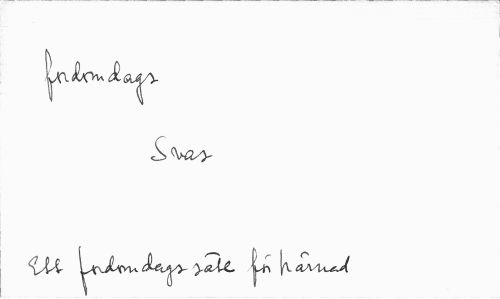 fordomdags
Svas
Ett fordomdags säte för härnad